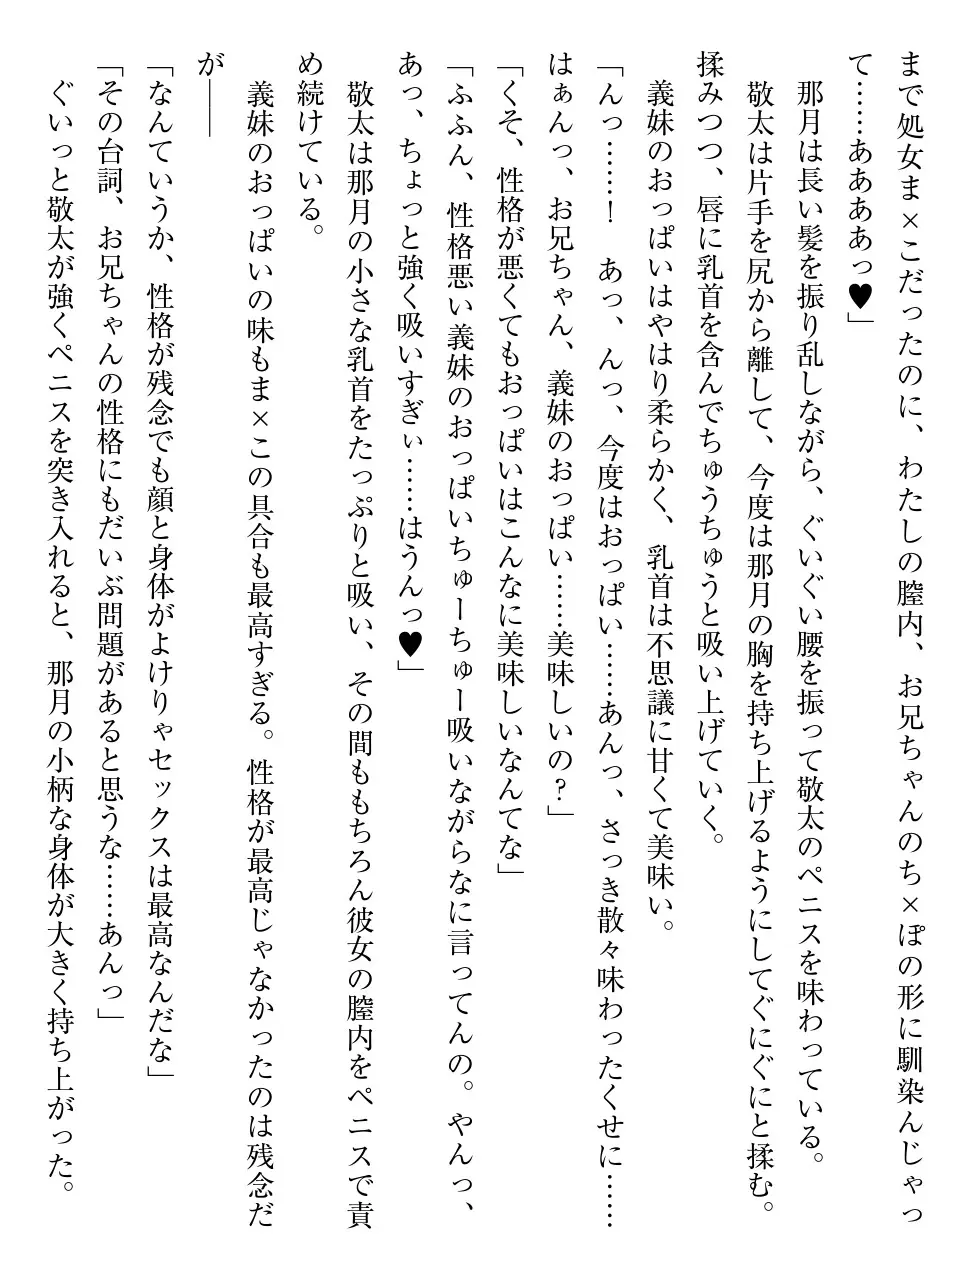 まで処女ま×こだったのに、わたしの膣内、お兄ちゃんのち×ぽの形に馴染んじゃっ
て……ああああっ♥」
那月は長い髪を振り乱しながら、ぐいぐい腰を振って敬太のペニスを味わっている。
敬太は片手を尻から離して、今度は那月の胸を持ち上げるようにしてぐにぐにと揉む。
揉みつつ、唇に乳首を含んでちゅうちゅうと吸い上げていく。
義妹のおっぱいはやはり柔らかく、乳首は不思議に甘くて美味い。
「んっ……！　あっ、んっ、今度はおっぱい……あんっ、さっき散々味わったくせに……
はぁんっ、お兄ちゃん、義妹のおっぱい……美味しいの？」
「くそ、性格が悪くてもおっぱいはこんなに美味しいなんてな」
「ふふん、性格悪い義妹のおっぱいちゅーちゅー吸いながらなに言ってんの。やんっ、
あっ、ちょっと強く吸いすぎぃ……はうんっ♥」
敬太は那月の小さな乳首をたっぷりと吸い、その間ももちろん彼女の膣内をペニスで責
め続けている。
義妹のおっぱいの味もま×この具合も最高すぎる。性格が最高じゃなかったのは残念だ
が――
「なんていうか、性格が残念でも顔と身体がよけりゃセックスは最高なんだな」
「その台詞、お兄ちゃんの性格にもだいぶ問題があると思うな……あんっ」
ぐいっと敬太が強くペニスを突き入れると、那月の小柄な身体が大きく持ち上がった。